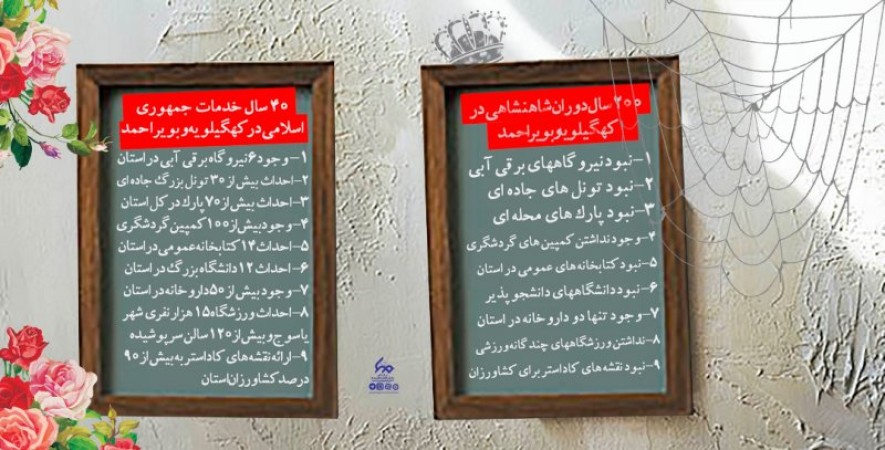 ۲۰۰ سال دوران شاهنشاهی در
کهگیلویه و بویراحمد
۱- نبود نیروگاههای برقی آبی
۲- نبود تونل های جاده ای
۳- نبود پارک های محله ای
۴- وجود نداشتن کمپین های گردشگری
۵- نبود کتابخانه های عمومی در استان
۶- نبود دانشگاههای دانشجو پذیر
۷- وجود تنها دو داروخانه در استان
۸- نداشتن ورزشگاههای چندگانه ورزشی
۹- نبود نقشه های کاداستر برای کشاورزان
۴۰ سال خدمات جمهوری
اسلامی در کهگیلویه و بویراحمد
۱- وجود ۶ نیروگاه برقی آبی در استان
۲- احداث بیش از ۳۰ تونل بزرگ جاده ای
۳- احداث بیش از ۷۰ پارک در کل استان
۴- وجود بیش از ۱۰۰ کمپین گردشگری
۵- احداث ۱۴ کتابخانه عمومی در استان
۶- احداث ۱۲ دانشگاه بزرگ در استان
۷- وجود بیش از ۵۰ داروخانه در استان
۸- احداث ورزشگاه ۱۵ هزار نفری شهر
یاسوج و بیش از ۱۲۰ سالن سرپوشیده
۹- ارائه نقشه های کاداستر به بیش از ۹۰
درصد کشاورزان استان